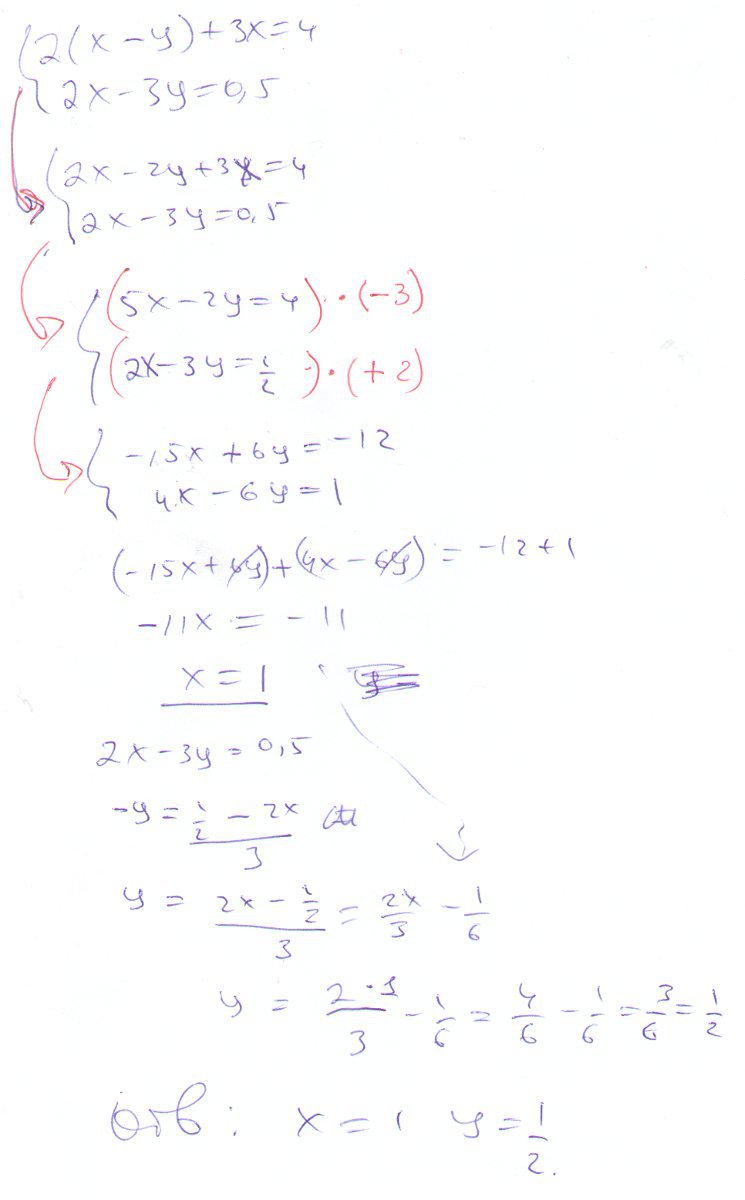 2(x-y)+3x=4
2x-3y=0,5
2x-2y+3x=4
2x-3y=0,5
(5x-2y=4)·(-3)
(2x-3y=1/2)·(+2)
-15x+6y=-12
4x-6y=1
(-15x+6y)+(4x-6y)=-12+1
-11x=-11
x=1
2x-3y=0,5
-y=(1/2-2x)/3
y=(2x-1/2)/3=2x/3-1/6
y=(2·1)/3-1/6=4/6-1/6=3/6=1/2
Отв: x=1 y=1/2.